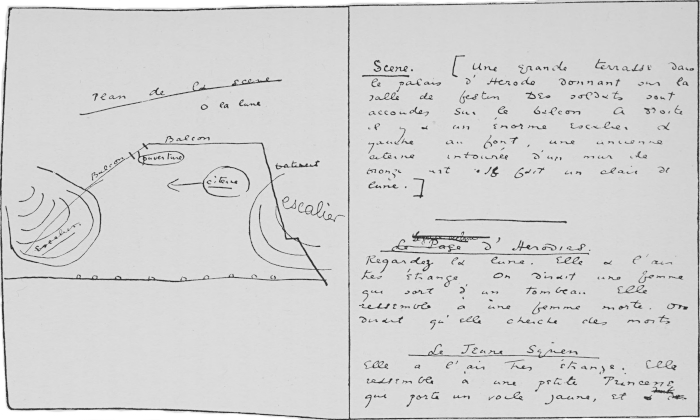 Plan de la scene
la lune
Balcon
Balcon
ouverture
batiment
citerne
escalier
Scene. [Une grande terrasse dans
le palais d'Herode donnant sur la
salle de festin Des soldats sont
accoudes sur le balcon A droite
il y a un énorme escalier a
gauche au font, une ancienne
citerne entouree d'un mur de
bronze Il fait un clair de
lune.]
Le Page d'Herodias.
Regardez la lune. Elle a l'air
tres étrange On dirait une femme
qui sort d'un tombeau Elle
ressemble à une femme morte. On
dirait qu'elle cherche des morts
Le Jeune Syrien
Elle a l'air tres étrange. Elle
ressemble à une petite Princess
qui porte un voile jaune, et